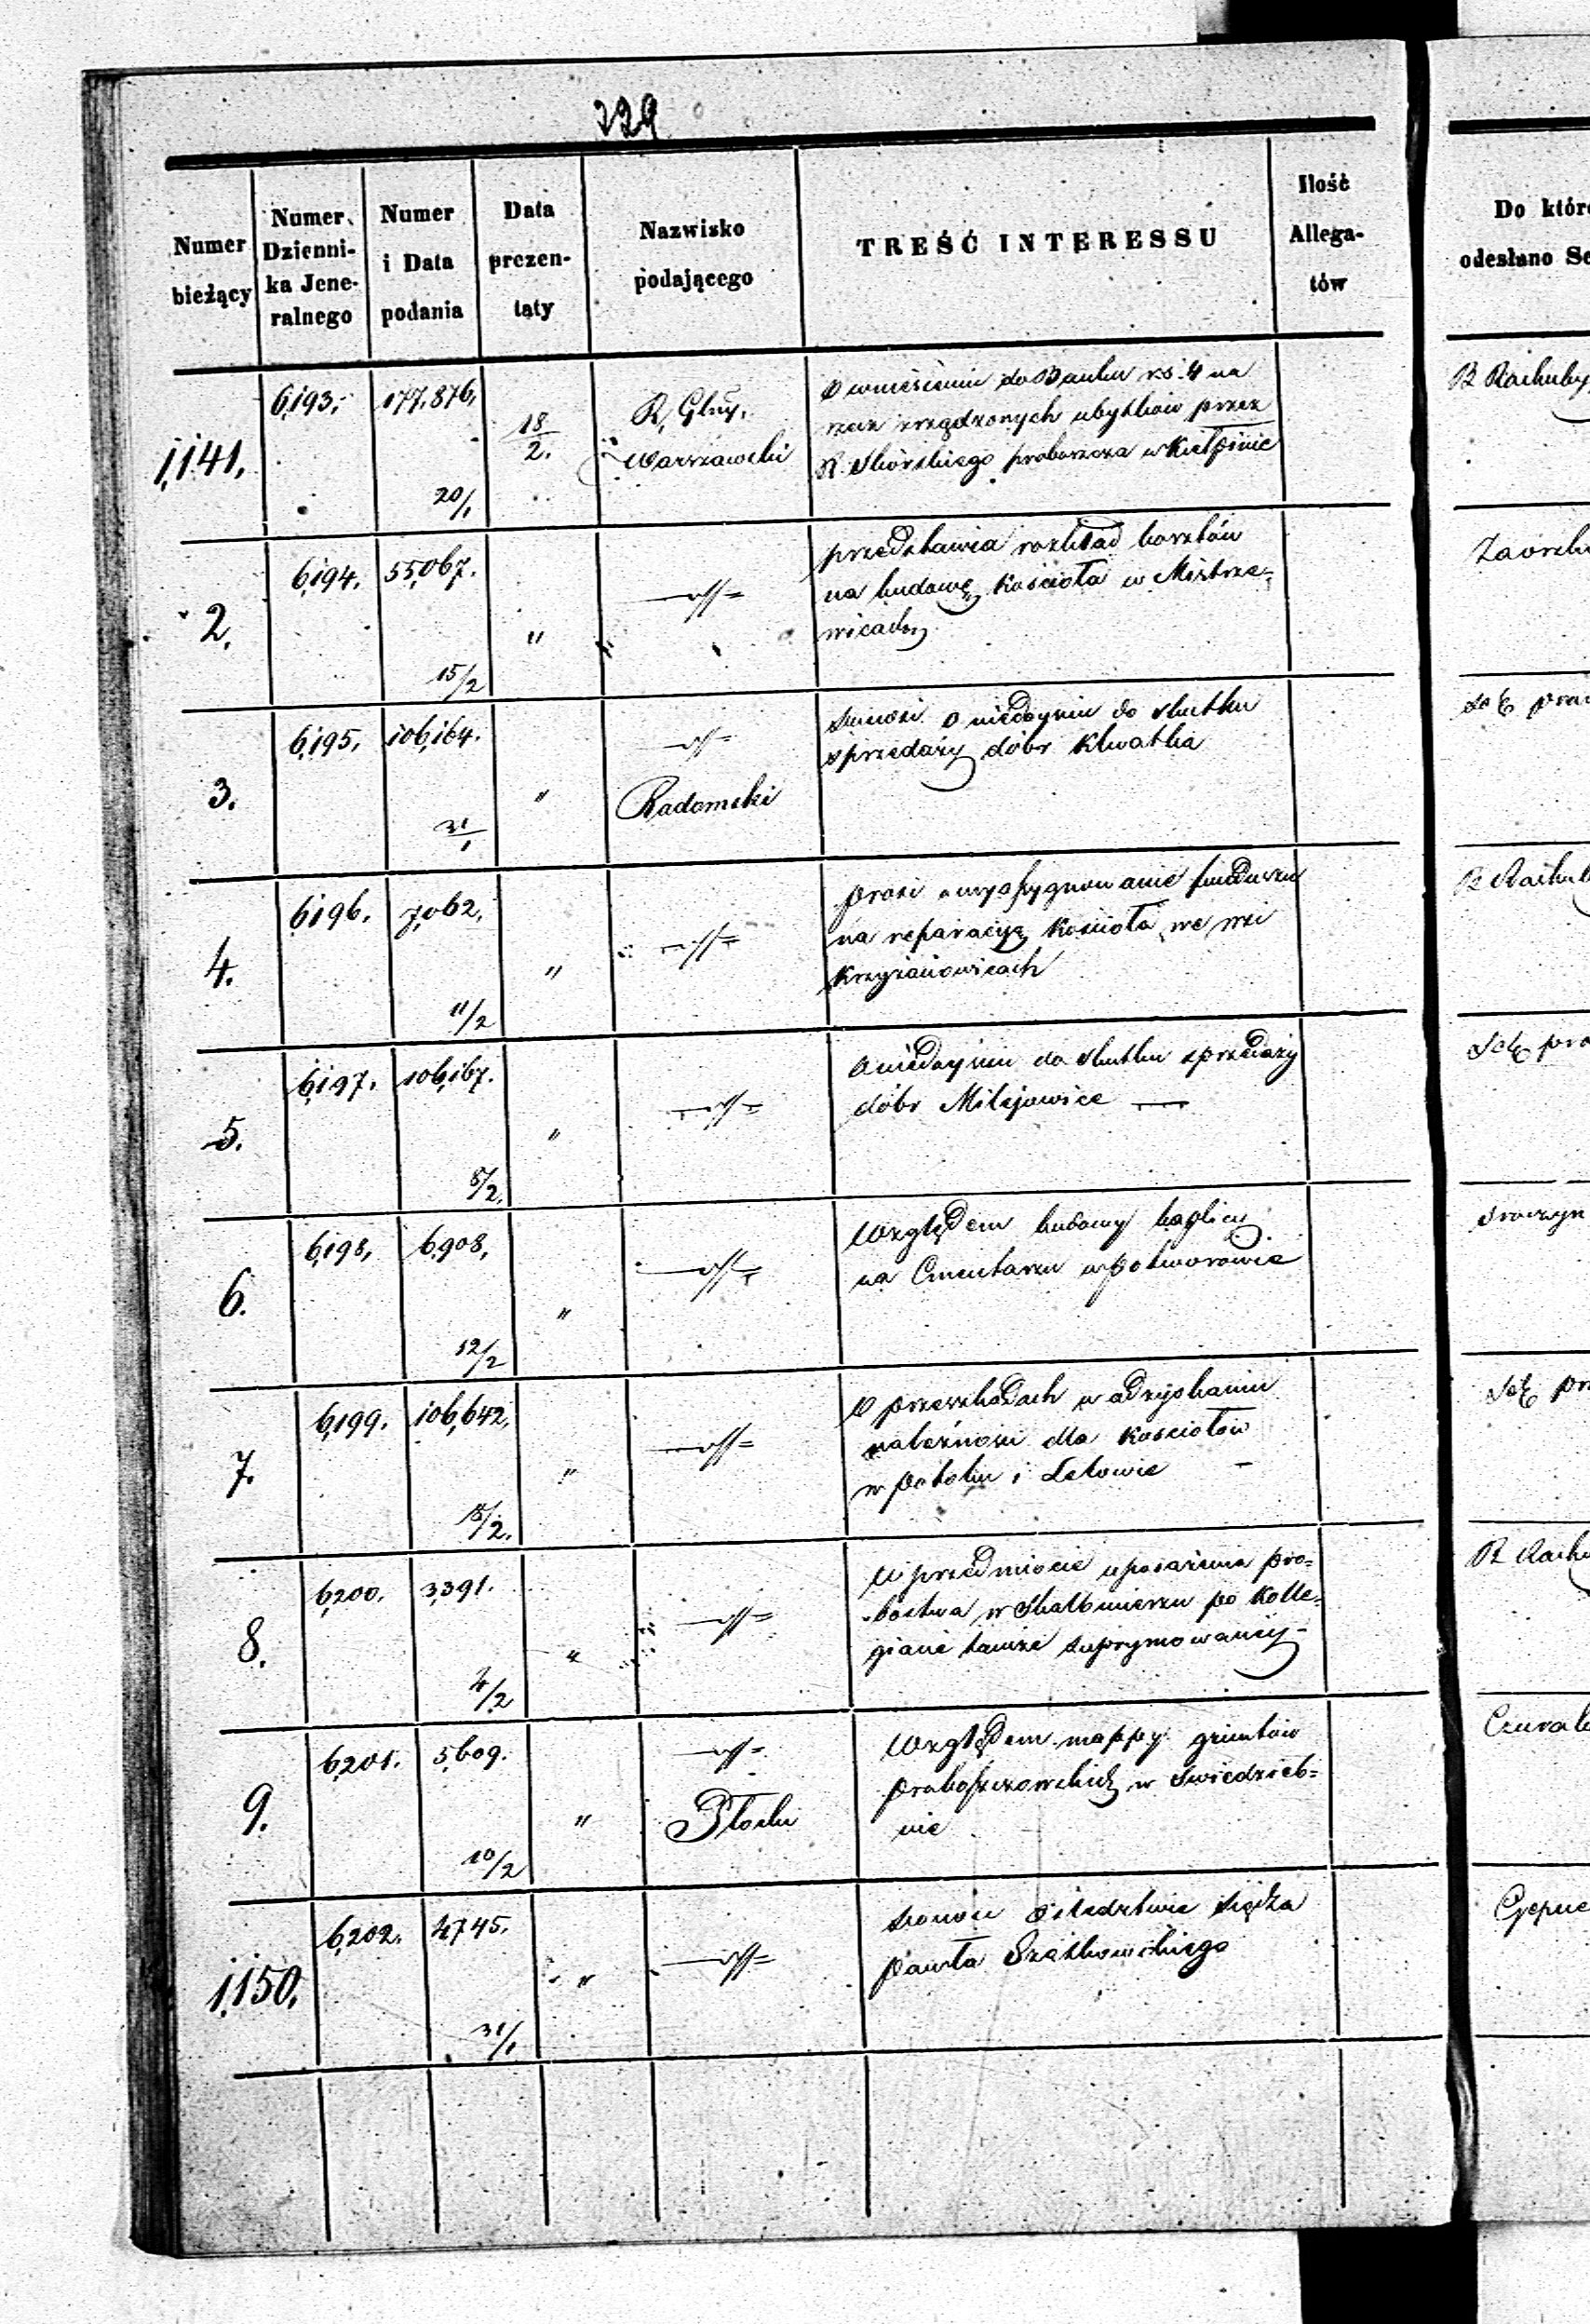 229
Numer bieżący
Numer Dziennika Jeneralnego
Numer i Data podania
Data prezentaty
Nazwisko podającego
TREŚĆ INTERESSU
Ilość Allegatów
Do które
odesłano Se
1,141. 6,193. 177,876. 20/1 18/2. R. Guy. Warszawski
O wniesieniu do Banku rs. 4 na
rzecz zrządzonych ubytków przez
X. Skórskiego proboszcza w Kiełpinie
R Rachuby
2. 6,194. 55,067. 15/2 " —//=
przedstawia rozkład kosztów
na budowę kościoła w Mistrze-
wicach
3. 6,195. 106,164. 31/1 " —//= Radomski
donosi o niedojściu do skutku
sprzedaży dóbr Klwatka
4. 6,196. 7,062. 11/2 " —//=
prosi o wyasygnowanie funduszu
na reparacyą kościoła we wsi
Krzyżanowicach
5. 6,197. 106,167. 8/2. " —//=
O niedojściu do skutku sprzedaży
dóbr Milejowice —
6. 6,198. 6,908. 12/2 " —//=
Względem budowy kaplicy
na Cmentarzu w Potworowie
7. 6,199. 106,642. 15/2. " —//=
O przeszkodach w odzyskaniu
należności dla kościołów
w i Letowie —
8. 6,200. 3,391. 4/2 " —//=
W przedmiocie uposażenia pro-
bostwa w Skalbmierzu po Kolle-
giacie tamże suprymowanej
9. 6,201. 5,609. 10/2 " —//= Płocki
Względem mappy gruntów
proboszczowskich w Swiedzieb-
nie
1,150. 6,202. 4,745. 31/1 " —//=
donosi o śledztwie księdza
Pawła Szatkowskiego